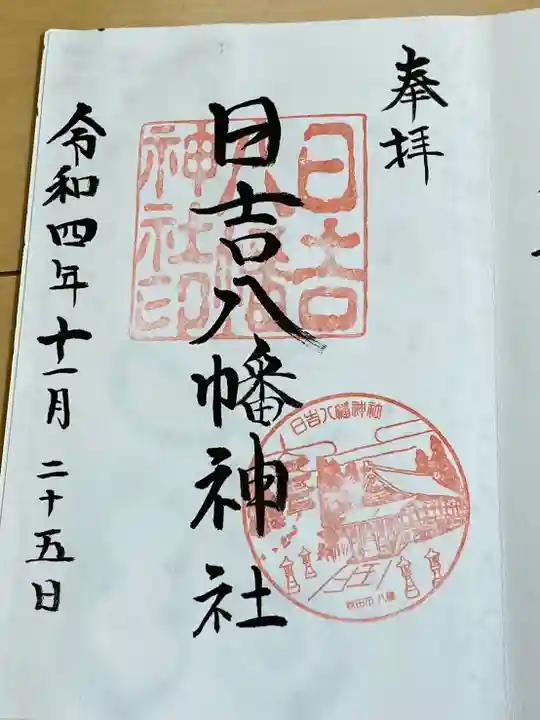 奉拝
日吉八幡神社
令和四年十一月二十五日
日吉
八幡
神社印
日吉八幡神社
秋田市 八橋